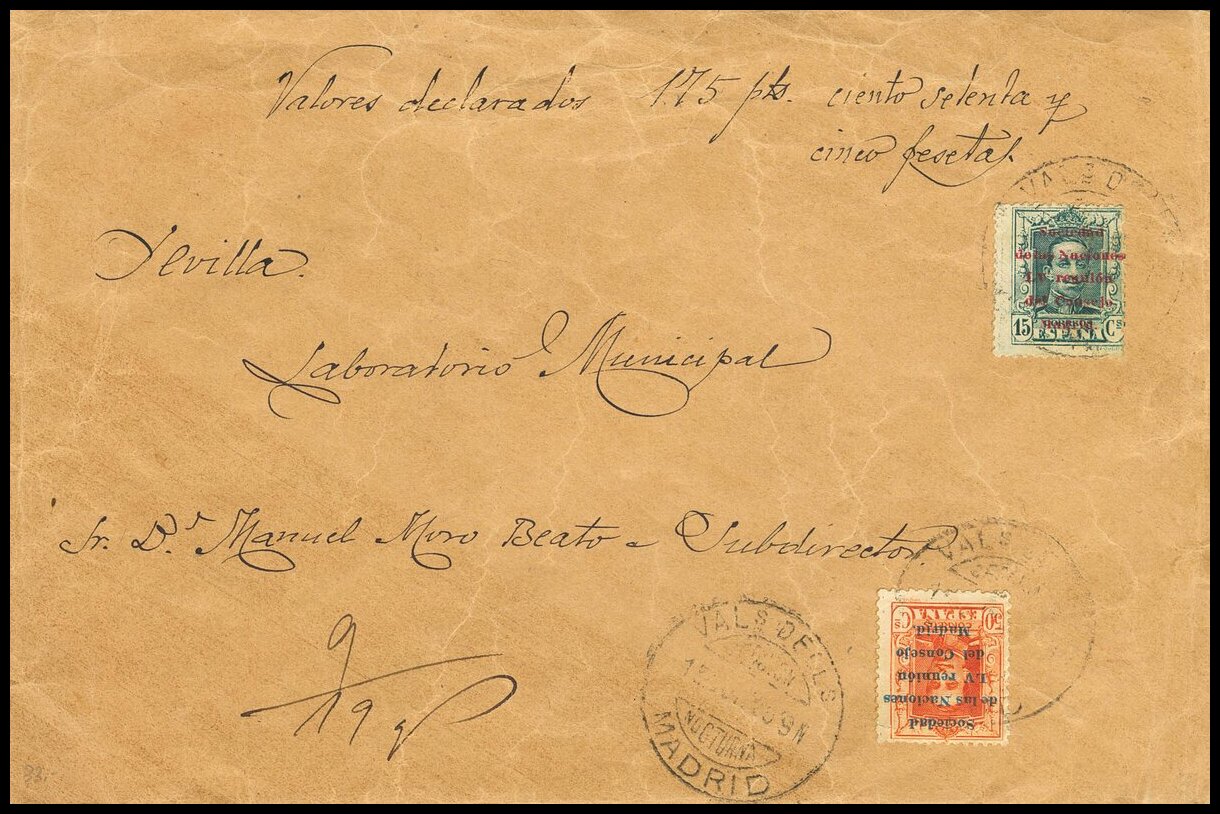 Valores declarados 175 pts. ciento setenta y
cinco pesetas.
VALS D
Sociedad
de las Naciones
LV reunión
del Consejo
Madrid.
15 Cs
ESPAÑA
Sevilla.
Laboratorio Municipal
Sr. Dn. Manuel Moro Beato - Subdirector.
VALS
50 Cs
ESPAÑA
Sociedad
de las Naciones
LV reunión
del Consejo
Madrid.
VALS DECLS
9N
NOCTURNA
MADRID
9
19